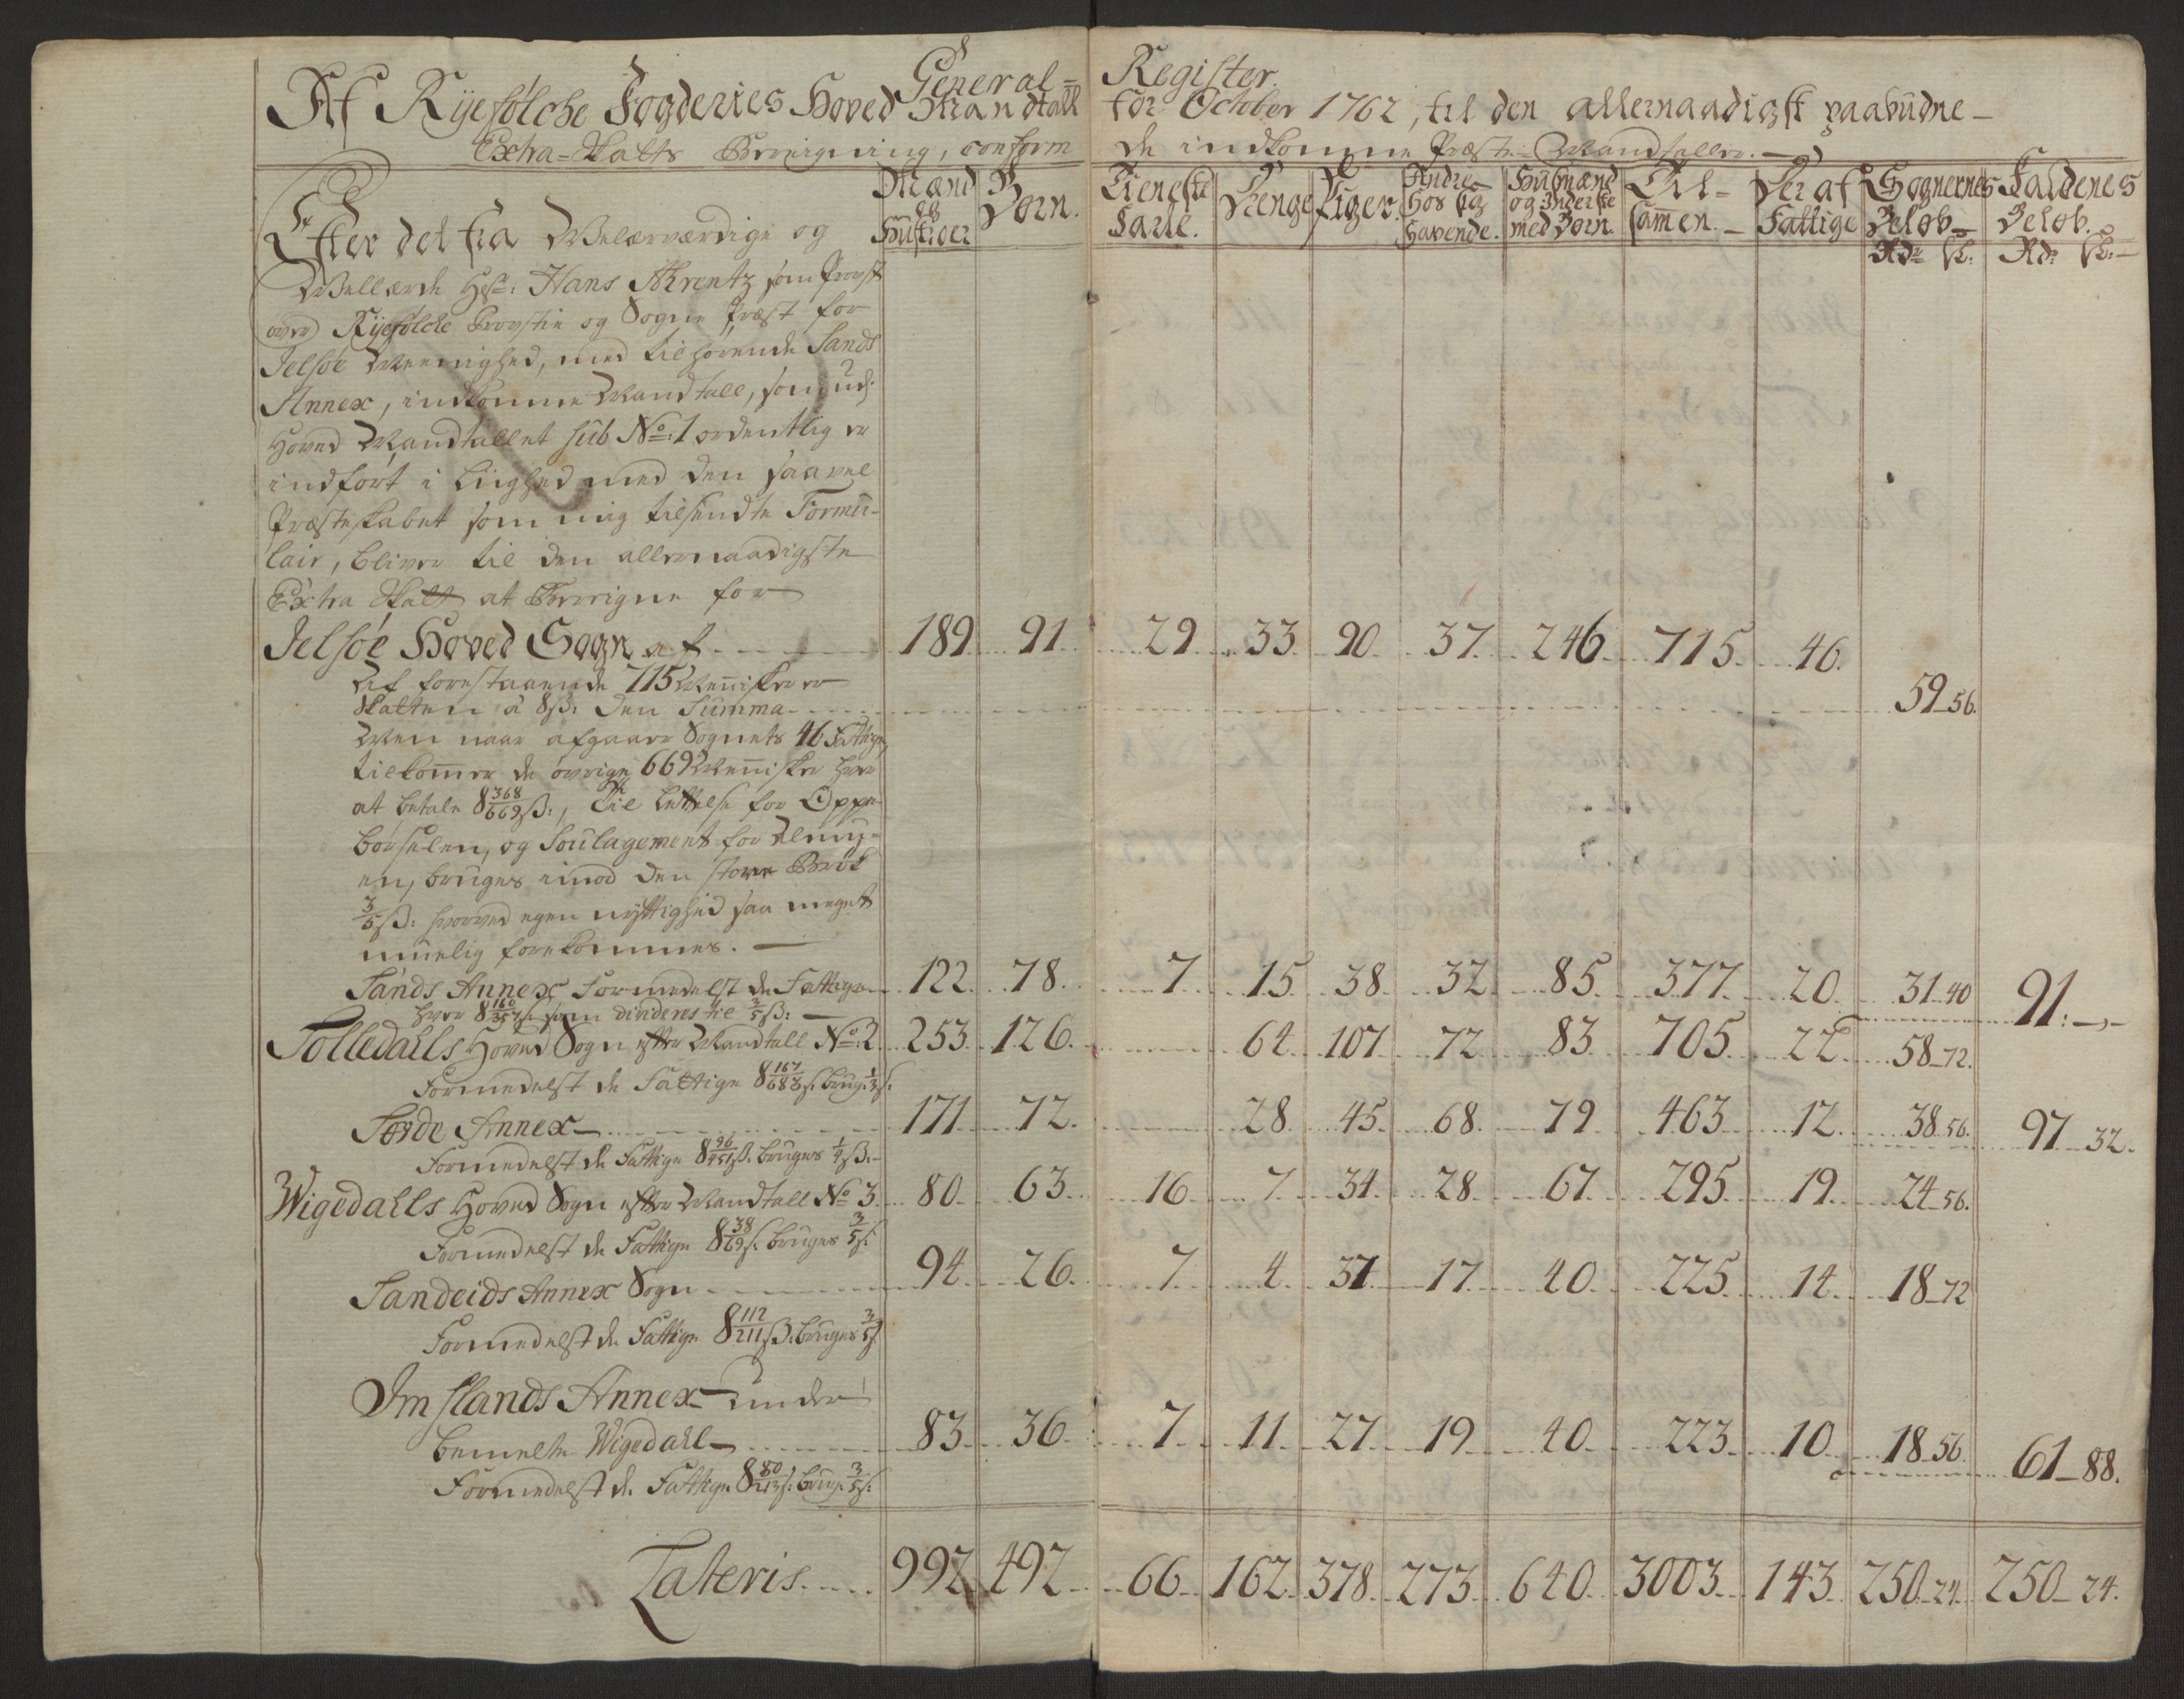 General= Register.
Af Ryefølche Fogderies Hoved Mandtall for October 1762, til den allernaadigst paabudne
Extra=Skatts Bereigning, conform de indkomne Præste Mandtaller. —
Mænd og Hustroer | Børn. | Tieneste Karle. | Drenge | Piger. | Andre hos sig havende. | Husmænd og Inderste med Børn. | Til= samen. | Der af Fattige | Sognernes Beløb Rdr ß: | Kaldenes Beløb. Rdr ß:
Efter det fra Velærværdige og
Vellærde Hr: Hans Ahrentz som Provst
over Ryefølche Provstie og Sogne Præst for
Jelsøe Meenighed, med tilhørende Sands
Annex, indkomne Mandtall, som udj
Hoved Mandtallet sub No: 1 ordentlig er
indført i Liighed med den saavel
Præsteskabet som mig tilsendte Formu-
lair, bliver til den allernaadigste
Extra Skatt at Bereigne for
Jelsøe Hoved Sogn af 189. 91. 29. 33. 90. 37. 246. 715. 46.
Af forestaaende 715 Menisker er
Skatten á 8 ß: den Summa 59-56.
Men naar afgaaer Sognets 46 Fattige,
tilkommer de øvrige 669 Menisker hver
at betale 8 368/669 ß:, til Lettelse for Oppe-
børselen, og Soulagement for Almu-
en, bruges imod den store Brøk
3/5 ß: hvorved egen nyttighed saa meget
muelig forekommes. —
Sands Annex Formedelst de Fattige 122. 78. 7. 15. 38. 32. 85. 377. 20. 31-40 91:-,-
hver 8 160/357 ß: som divideres til 3/5 ß:
Solledahls Hoved Sogn efter Mandtall No: 2. 253. 126. 64. 107. 72. 83. 705. 22. 58-72.
Formedelst de Fattige 8 167/683 ß. brug: 1/3 ß.
Sørde Annex 171. 72. 28. 45. 68. 79. 463. 12. 38-56. 97-32.
Formedelst de Fattige 8 96/451 ß. bruges 1/4 ß:
Wigedahls Hoved Sogn efter Mandtall No 3. 80. 63. 16. 7. 34. 28. 67. 295. 19. 24-56.
Formedelst de Fattige 8 38/69 ß. bruges 3/5 ß.
Sandeids Annex Sogn 94. 26. 7. 4. 37. 17. 40. 225. 14. 18-72
Formedelst de Fattige 8 112/211 ß. bruges 3/5 ß.
Imslands Annex under
bemelte Wigedahl 83. 36. 7. 11. 27. 19. 40. 223. 10. 18-56. 61-88.
Formedelst de Fattige 8 80/213 ß: brug: 3/5 ß:
Lateris 992. 492. 66. 162. 378. 273. 640. 3003. 143. 250-24. 250-24.